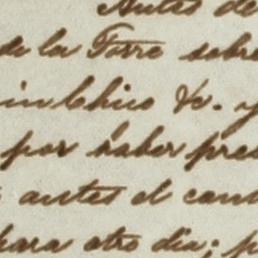 Antes de
de la Torre sobre
in Chico &c. y
por haber pre
antes el con
para otro dia; p